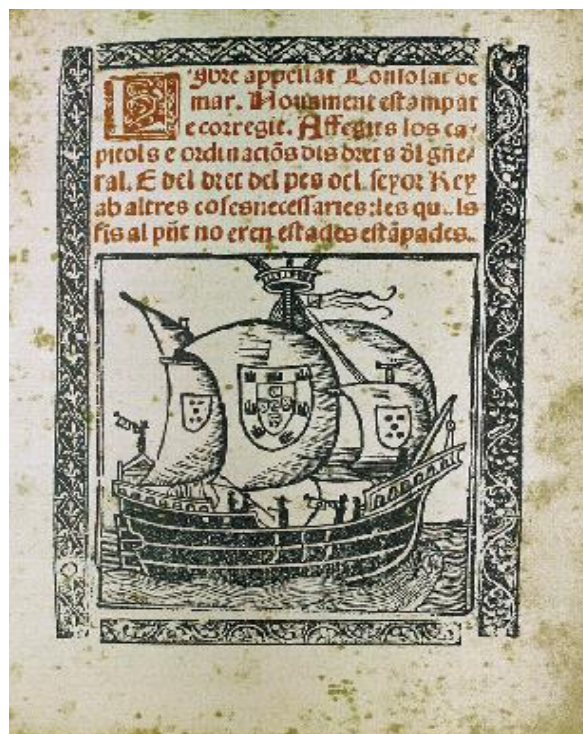 Lybre appellat Consolat de
mar. Nouament estampat
e corregit. Affegits los ca⸗
pitols e ordinaciõs dls drets dl gñe⸗
ral. E del dret del pes del senyor Rey
ab altres coses necessaries: les quals
fis al pñt no eren estades estãpades.